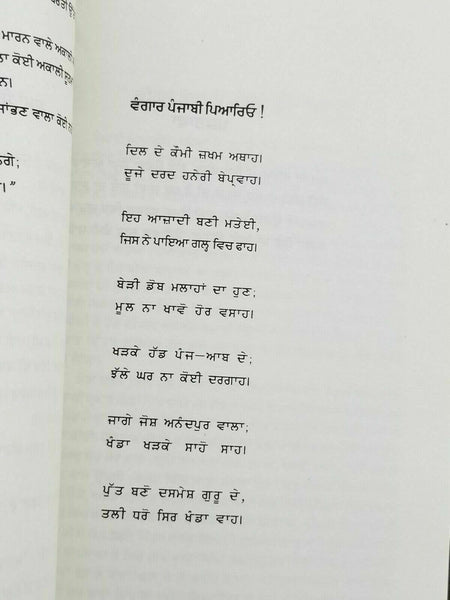 ਮਾਰਨ ਵਾਲੇ ਅਕਾਲੀ
ਕੋਈ ਅਕਾਲੀ
ਵਾਲਾ ਕੋਈ
ਵੰਗਾਰ ਪੰਜਾਬੀ ਪਿਆਰਿਓ !
ਦਿਲ ਦੇ ਕੌਮੀ ਜ਼ਖਮ ਅਥਾਹ।
ਦੂਜੇ ਦਰਦ ਹਨੇਰੀ ਬੇਪ੍ਰਵਾਹ।
ਇਹ ਆਜ਼ਾਦੀ ਬਣੀ ਮਤੇਈ,
ਜਿਸ ਨੇ ਪਾਇਆ ਗਲ੍ਹ ਵਿਚ ਫਾਹ।
ਬੇੜੀ ਡੋਬ ਮਲਾਹਾਂ ਦਾ ਹੁਣ;
ਮੂਲ ਨਾ ਖਾਵੋ ਹੋਰ ਵਸਾਹ।
ਖੜਕੇ ਹੱਡ ਪੰਜ–ਆਬ ਦੇ;
ਝੱਲੇ ਘਰ ਨਾ ਕੋਈ ਦਰਗਾਹ।
ਜਾਗੇ ਜੋਸ਼ ਅਨੰਦਪੁਰ ਵਾਲਾ;
ਖੰਡਾ ਖੜਕੇ ਸਾਹੋ ਸਾਹ।
ਪੁੱਤ ਬਣੋ ਦਸਮੇਸ਼ ਗੁਰੂ ਦੇ,
ਤਲੀ ਧਰੋ ਸਿਰ ਖੰਡਾ ਵਾਹ।